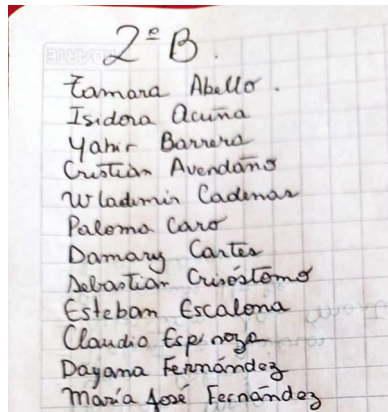 2º B.
Tamara Abello.
Isidora Acuña
Yahir Barrera
Cristian Avendaño
Wladimir Cadenas
Paloma Caro
Damary Cartes
Sebastian Crisóstomo
Esteban Escalona
Claudia Espinoza
Dayana Fernández
María José Fernández